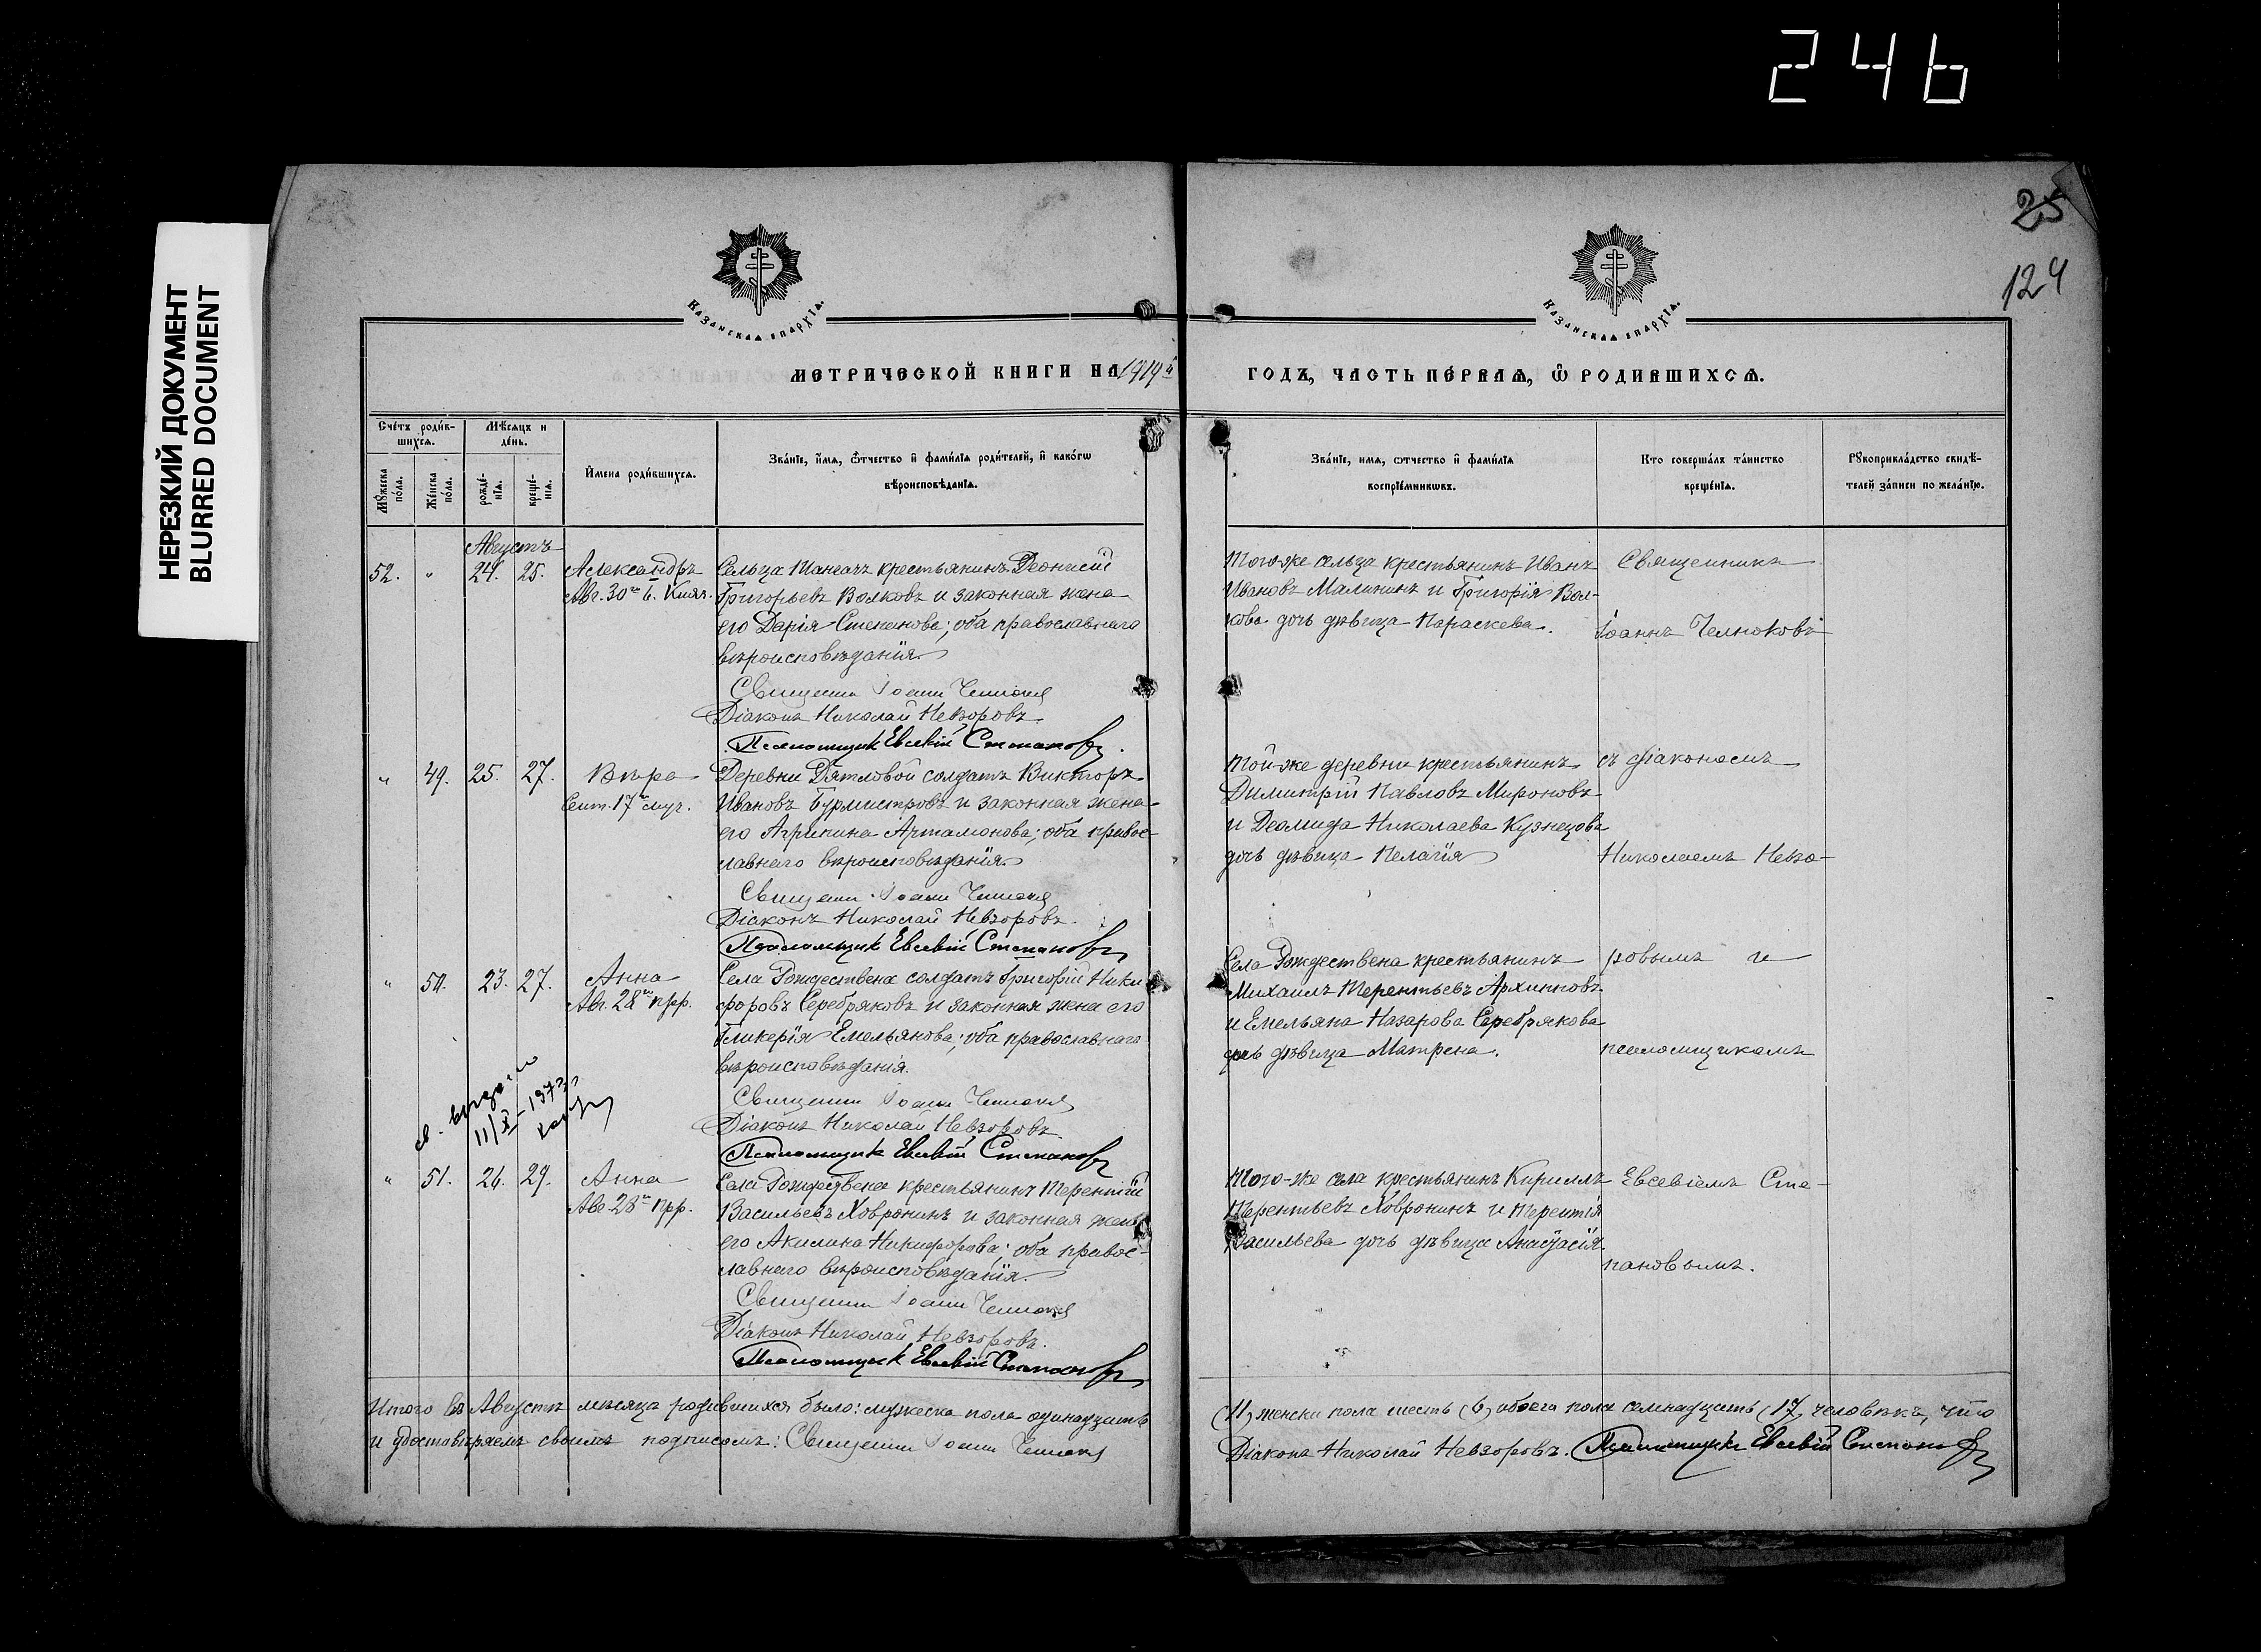 246
НЕРЕЗКИЙ ДОКУМЕНТ
BLURRED DOCUMENT
25
124
Казанская епархїѧ.
Казанская епархїѧ.
МЕТРИЧЕСКОЙ КНИГИ НА 1919й ГОДЪ, ЧАСТЬ ПЕРВАѦ, Ѿ РОДИВШИХСѦ.
Счетъ родив-
шихсѧ.
Мꙋжеска пола.
Женска пола.
Мѣсѧцъ и
день.
рожде-
нїѧ.
креще-
нїѧ.
Имена родившихсѧ.
Званїе, имѧ, ѿчество и фамилїѧ родителей, и какогѡ
вѣроисповѣданїѧ.
Званїе, имѧ, ѿчество и фамилїѧ
воспрїемникѡвъ.
Кто совершалъ таинство
крещенїѧ.
Рꙋкоприкладство свидѣ-
телей записи по желанїю.
Августъ
52. " 24. 25. Александръ
Авг. 30го б. Княз.
Сельца Шангачъ крестьянинъ Деонисій
Григорьевъ Волковъ и законная жена
его Дарія Степанова; оба православнаго
вѣроисповѣданія.
Священн. Іоаннъ Челноковъ
Діаконъ Николай Невзоровъ.
Псаломщикъ Евсевій Степановъ.
Того-же сельца крестьянинъ Иванъ
Ивановъ Малининъ и Григорія Вол-
кова дочь дѣвица Параскева.
Священникъ
Іоаннъ Челноковъ
" 49. 25. 27. Вѣра
Сент. 17го муч.
Деревни Дятловой солдатъ Викторъ
Ивановъ Бурмистровъ и законная жена
его Агрипина Артамонова; оба правос-
лавнаго вѣроисповѣданія.
Священн. Іоаннъ Челноковъ
Діаконъ Николай Невзоровъ.
Псаломщикъ Евсевій Степановъ
Той-же деревни крестьянинъ
Димитрій Павловъ Мироновъ
и Деомида Николаева Кузнецова
дочь дѣвица Пелагія
съ діакономъ
Николаемъ Невзо-
" 50. 23. 27. Анна
Авг. 28го прр.
Села Рождествена солдатъ Григорій Ники
форовъ Серебряковъ и законная жена его
Гликерія Емельянова; оба православнаго
вѣроисповѣданія.
Священн. Іоаннъ Челноковъ
Діаконъ Николай Невзоровъ.
Псаломщикъ Евсевій Степановъ
Села Рождествена крестьянинъ
Михаилъ Терентьевъ Архиповъ
и Емельяна Назарова Серебрякова
дочь дѣвица Матрена.
ровымъ и
псаломщикомъ
11/X-1973
" 51. 26. 29. Анна
Авг. 28го прр.
Села Рождествена крестьянинъ Терентій
Васильевъ Ховронинъ и законная жена
его Акилина Никифорова; оба правос-
лавнаго вѣроисповѣданія.
Священн. Іоаннъ Челноковъ
Діаконъ Николай Невзоровъ.
Псаломщикъ Евсевій Степановъ
Того-же села крестьянинъ Кириллъ
Терентьевъ Ховронинъ и Терентія
Васильева дочь дѣвица Анастасія.
Евсевіемъ Сте-
пановымъ.
Итого въ Августѣ мѣсяцѣ родившихся было: мужеска пола одинадцать
(11) женска пола шесть (6) обоего пола семнадцать (17) человѣкъ, что
и удостовѣряемъ своимъ подписомъ: Священн. Іоаннъ Челноковъ
Діаконъ Николай Невзоровъ. Псаломщикъ Евсевій Степановъ